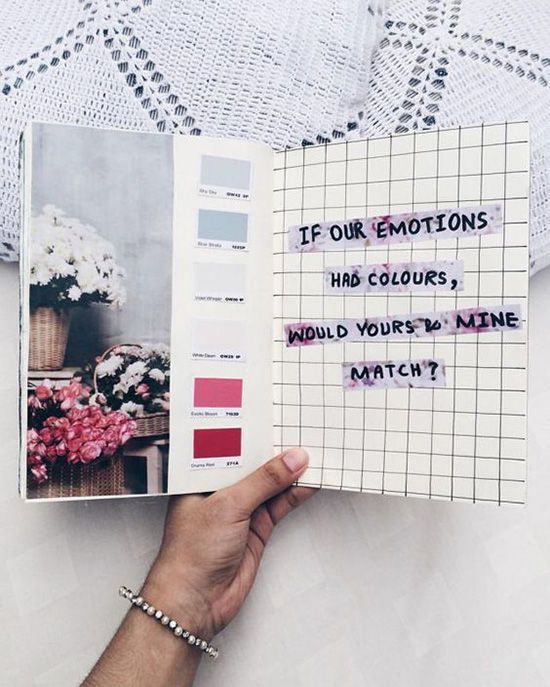 Shy Sky OW42 1P
Blue Straits 1225P
Violet Whisper OW30 1P
White Dawn OW25 1P
Exotic Bloom
Drama Red 271A
IF OUR EMOTIONS
HAD COLOURS,
WOULD YOURS & MINE
MATCH?